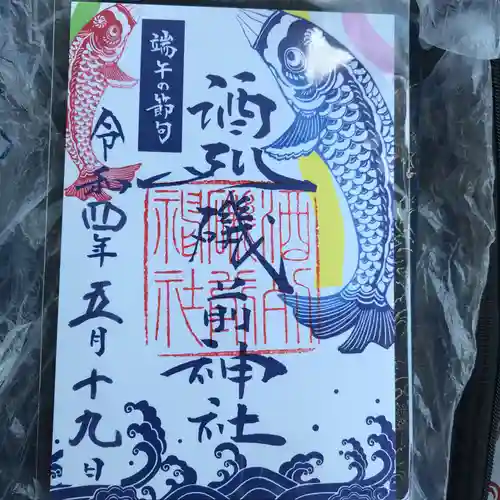 酒列磯前神社
端午の節句
令和四年五月十九日
酒列
磯前
神社